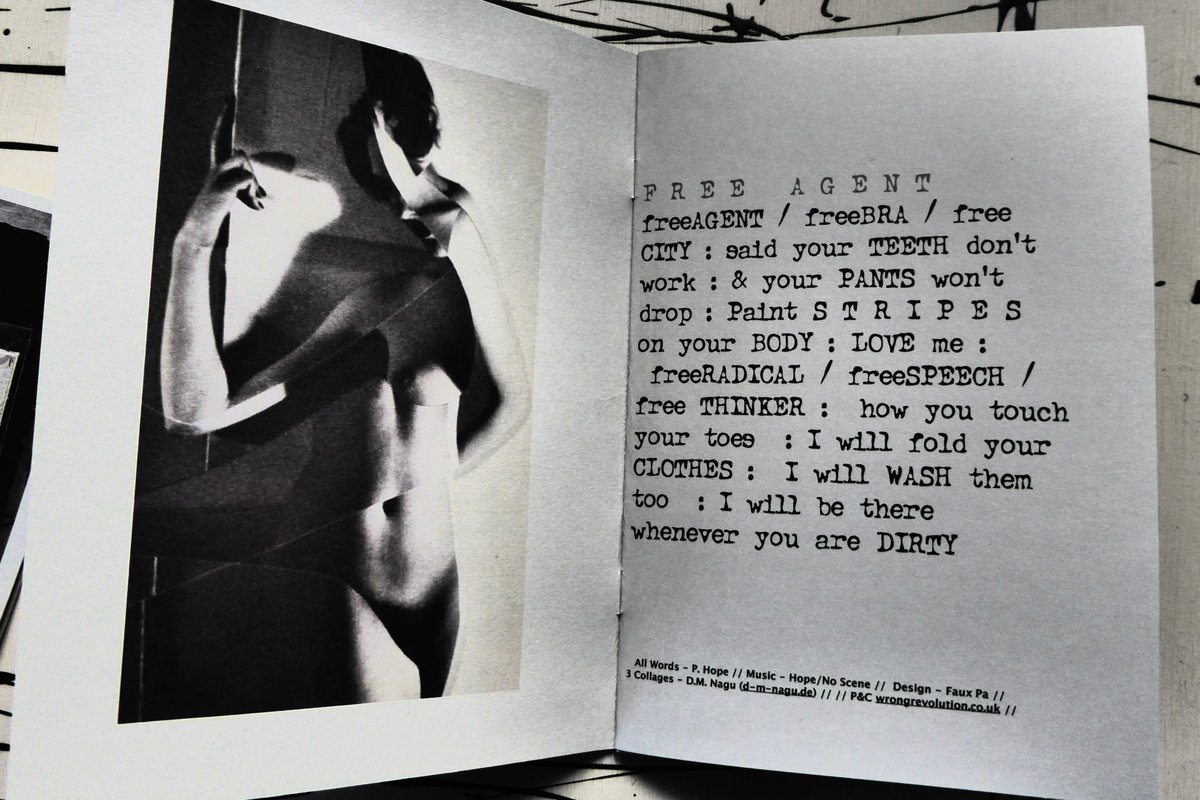 FREE AGENT
freeAGENT / freeBRA / free
CITY : said your TEETH don't
work : & your PANTS won't
drop : Paint S T R I P E S
on your BODY : LOVE me :
freeRADICAL / freeSPEECH /
free THINKER : how you touch
your toes : I will fold your
CLOTHES : I will WASH them
too : I will be there
whenever you are DIRTY
All Words - P. Hope // Music - Hope/No Scene // Design - Faux Pa //
3 Collages - D.M. Nagu (d-m-nagu.de) // // P&C wrongrevolution.co.uk //